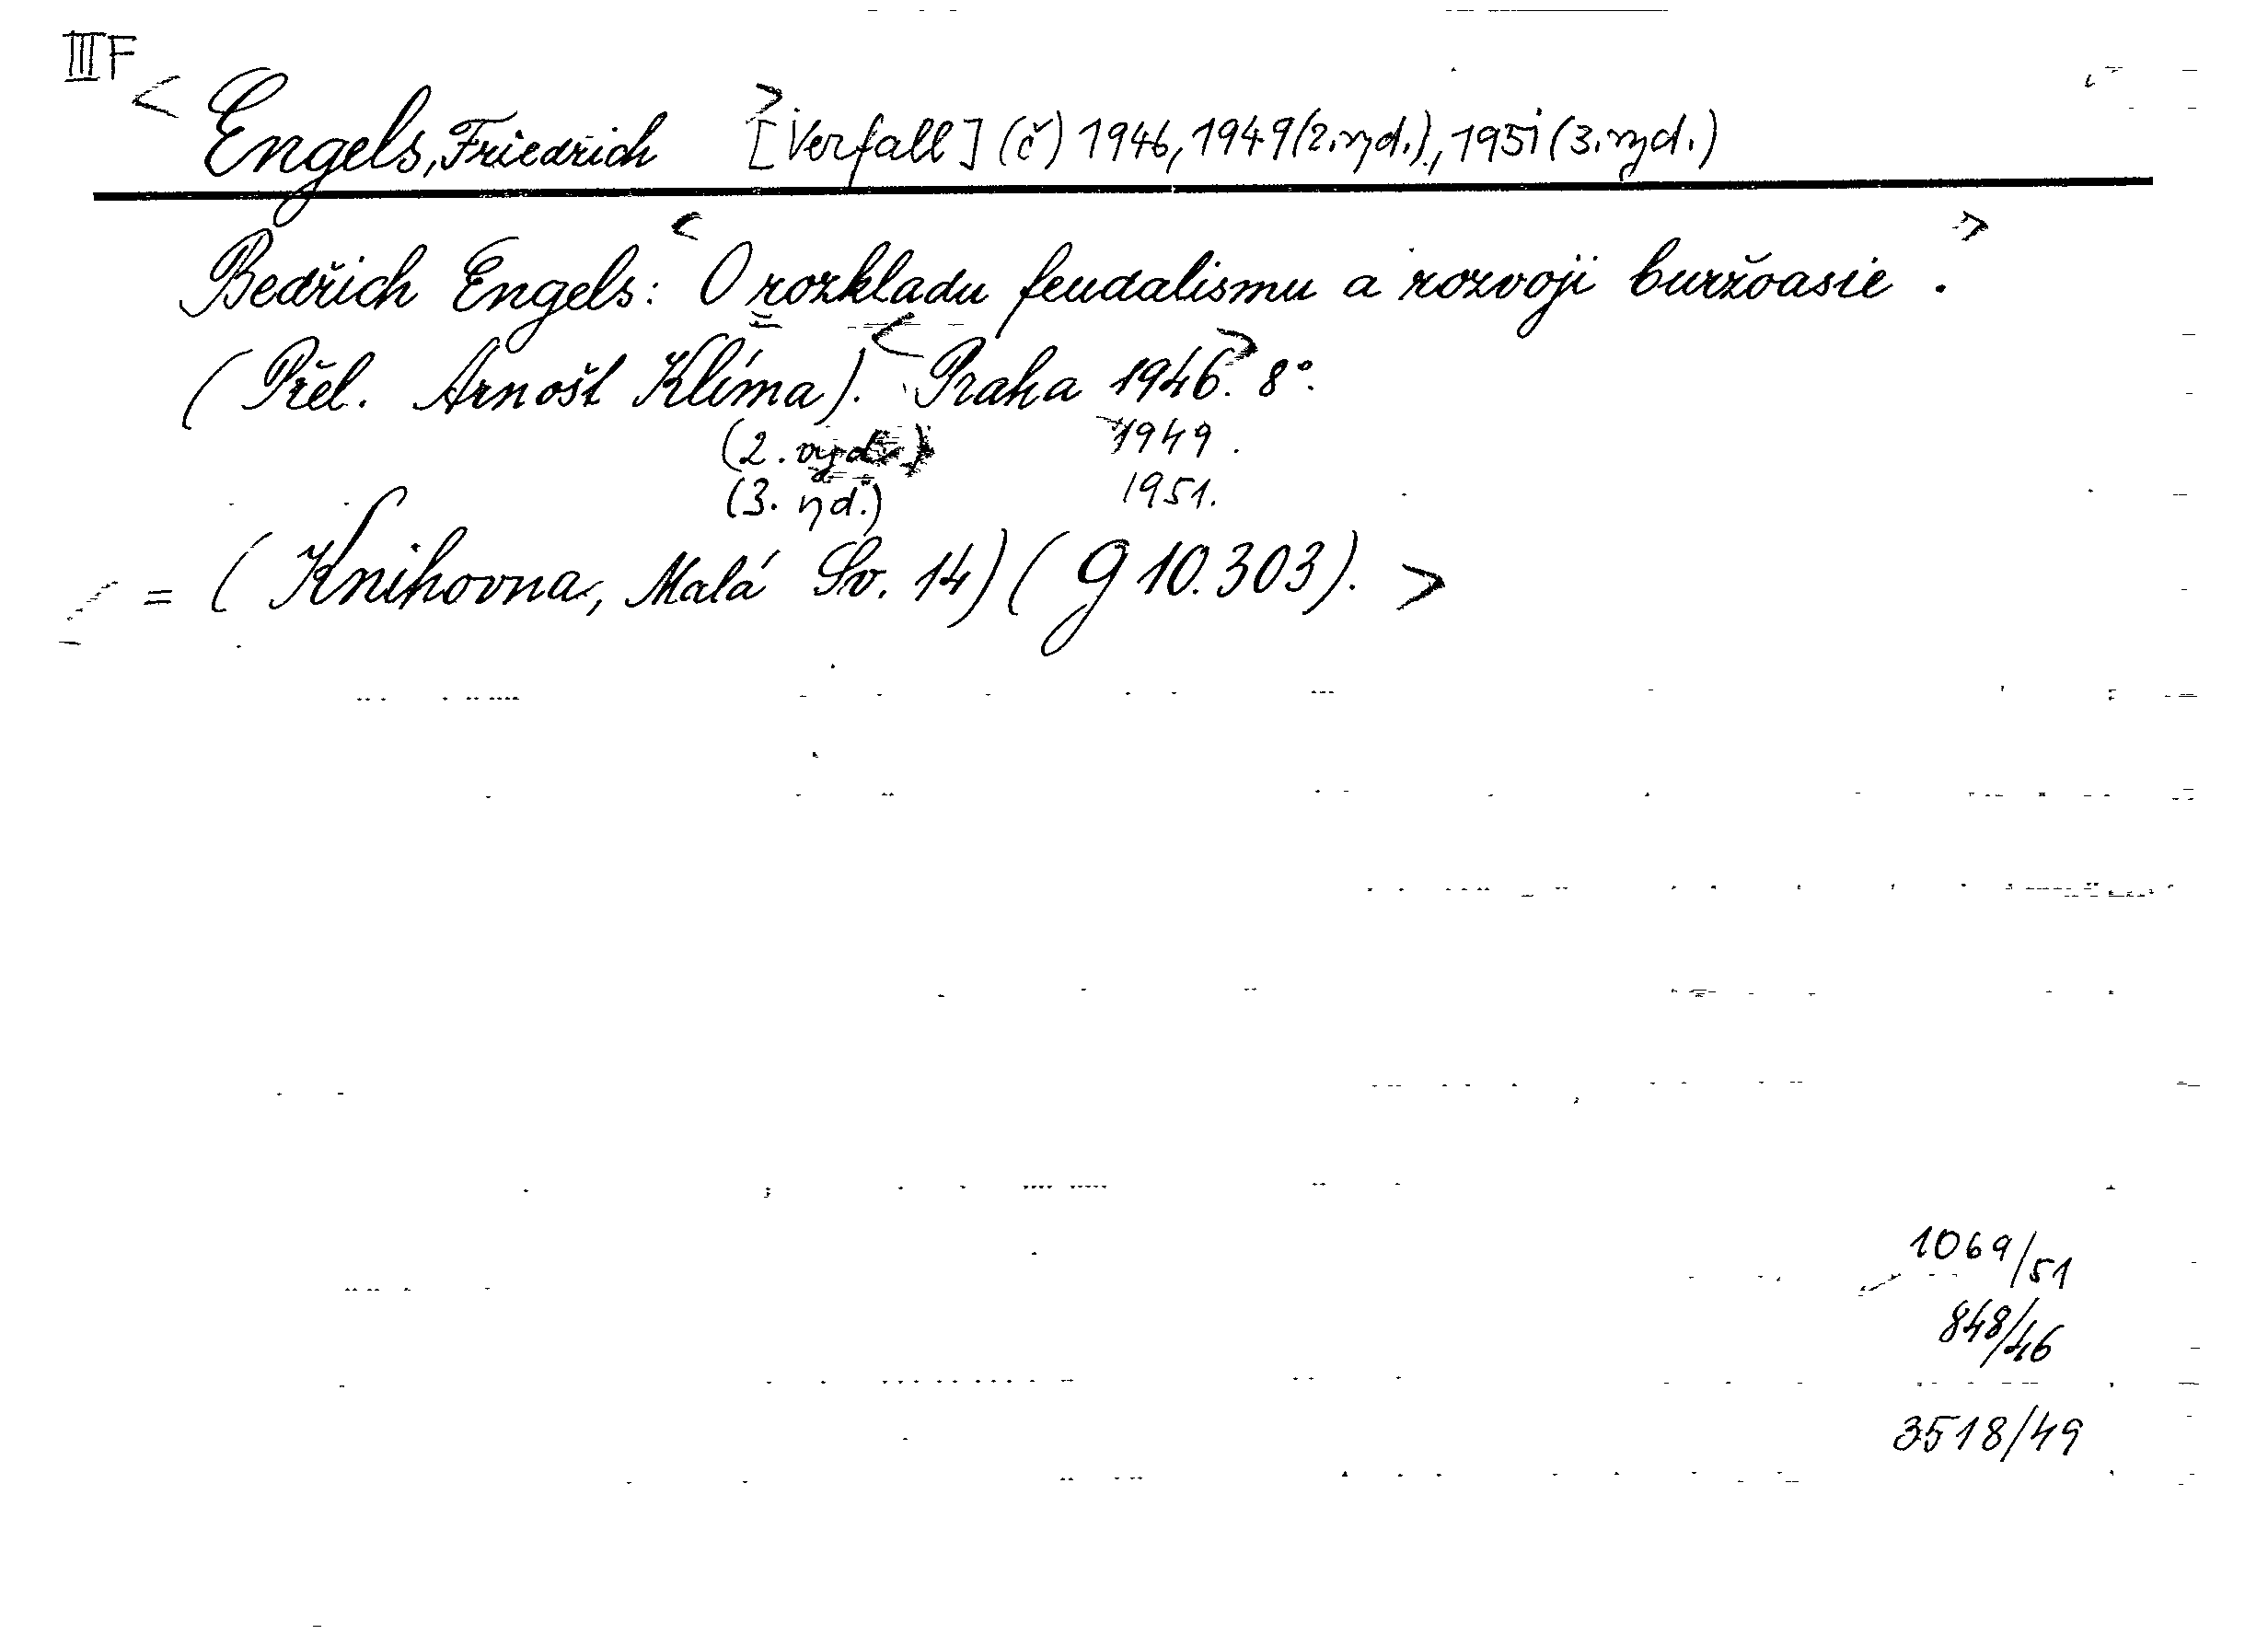 III F
< Engels, Friedrich > [Verfall] (č) 1946, 1949 (2. vyd.), 1951 (3. vyd.)
Bedřich Engels: < O rozkladu feudalismu a rozvoji buržoasie. >
(Přel. Arnošt Klíma). < Praha 1946. > 8°.
(2. vyd.) 1949.
(3. vyd.) 1951.
= (Knihovna, Malá Sv. 14) (G 10.303). >
1069/51
848/46
3518/49